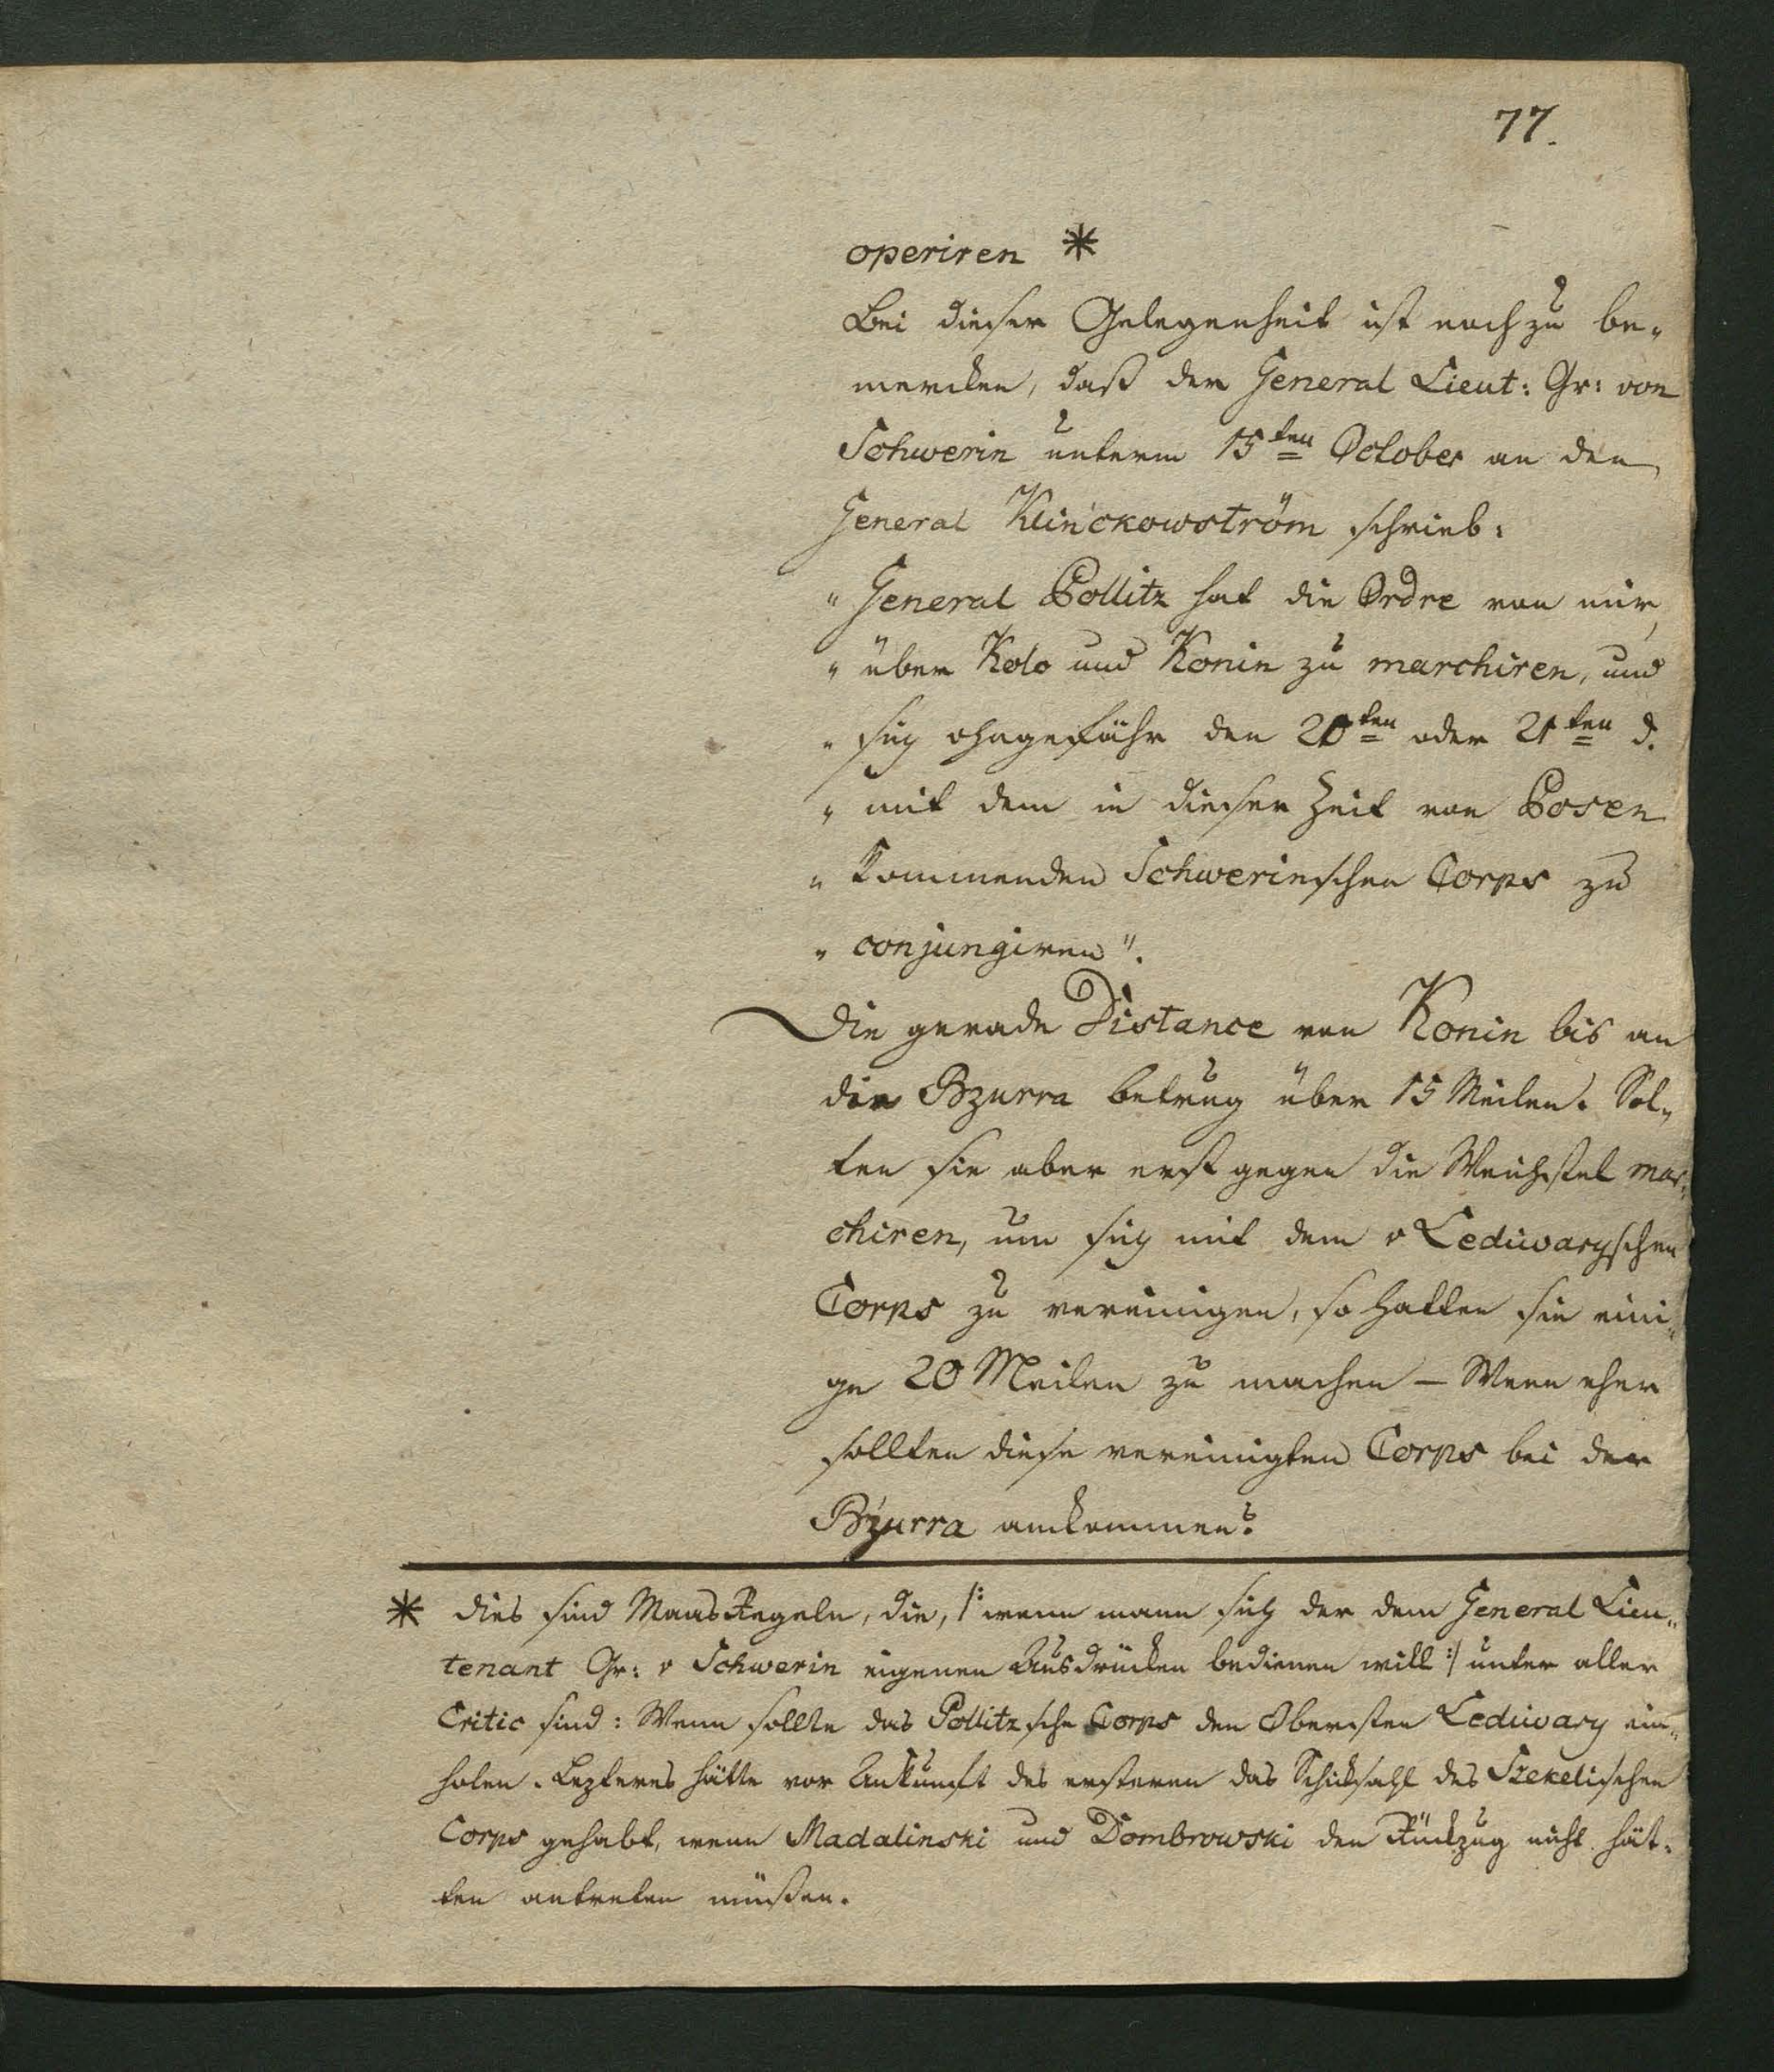 77.
operiren *
Bei dieser Gelegenheit ist noch zu be-
mercken, daß der General Lieut: Gr: von
Schwerin unterm 15ten October an den
General Klinckowström schrieb:
"General Pollitz hat die Ordre von mir,
"über Kolo und Konin zu marchiren, und
"sich ohngefähr den 20ten oder 21ten d.
"mit dem in dieser Zeit von Posen
"kommenden Schwerinschen Corps zu
"conjungiren".
Die gerade Distance von Konin bis an
die Bzurra betrug über 15 Meilen. Sol-
ten sie aber erst gegen die Weichsel mar-
chiren, um sich mit dem v Lediwaryschen
Corps zu vereinigen, so hatten sie eini-
ge 20 Meilen zu machen – Wenn eher
sollten diese vereinigten Corps bei der
Bzurra ankommen?
* Dies sind Maas Regeln, die, /: wenn mann sich der dem General Lieu-
tenant Gr: v Schwerin eigenen Ausdrücken bedienen will :/ unter aller
Critic sind: Wenn sollte das Pollitzsche Corps den Obersten Lediwary ein-
holen. Lezteres hätte vor Ankunft des ersteren das Schicksahl des Szekelischen
Corps gehabt, wenn Madalinski und Dombrowski den Rückzug nicht hät-
ten antreten müßen.